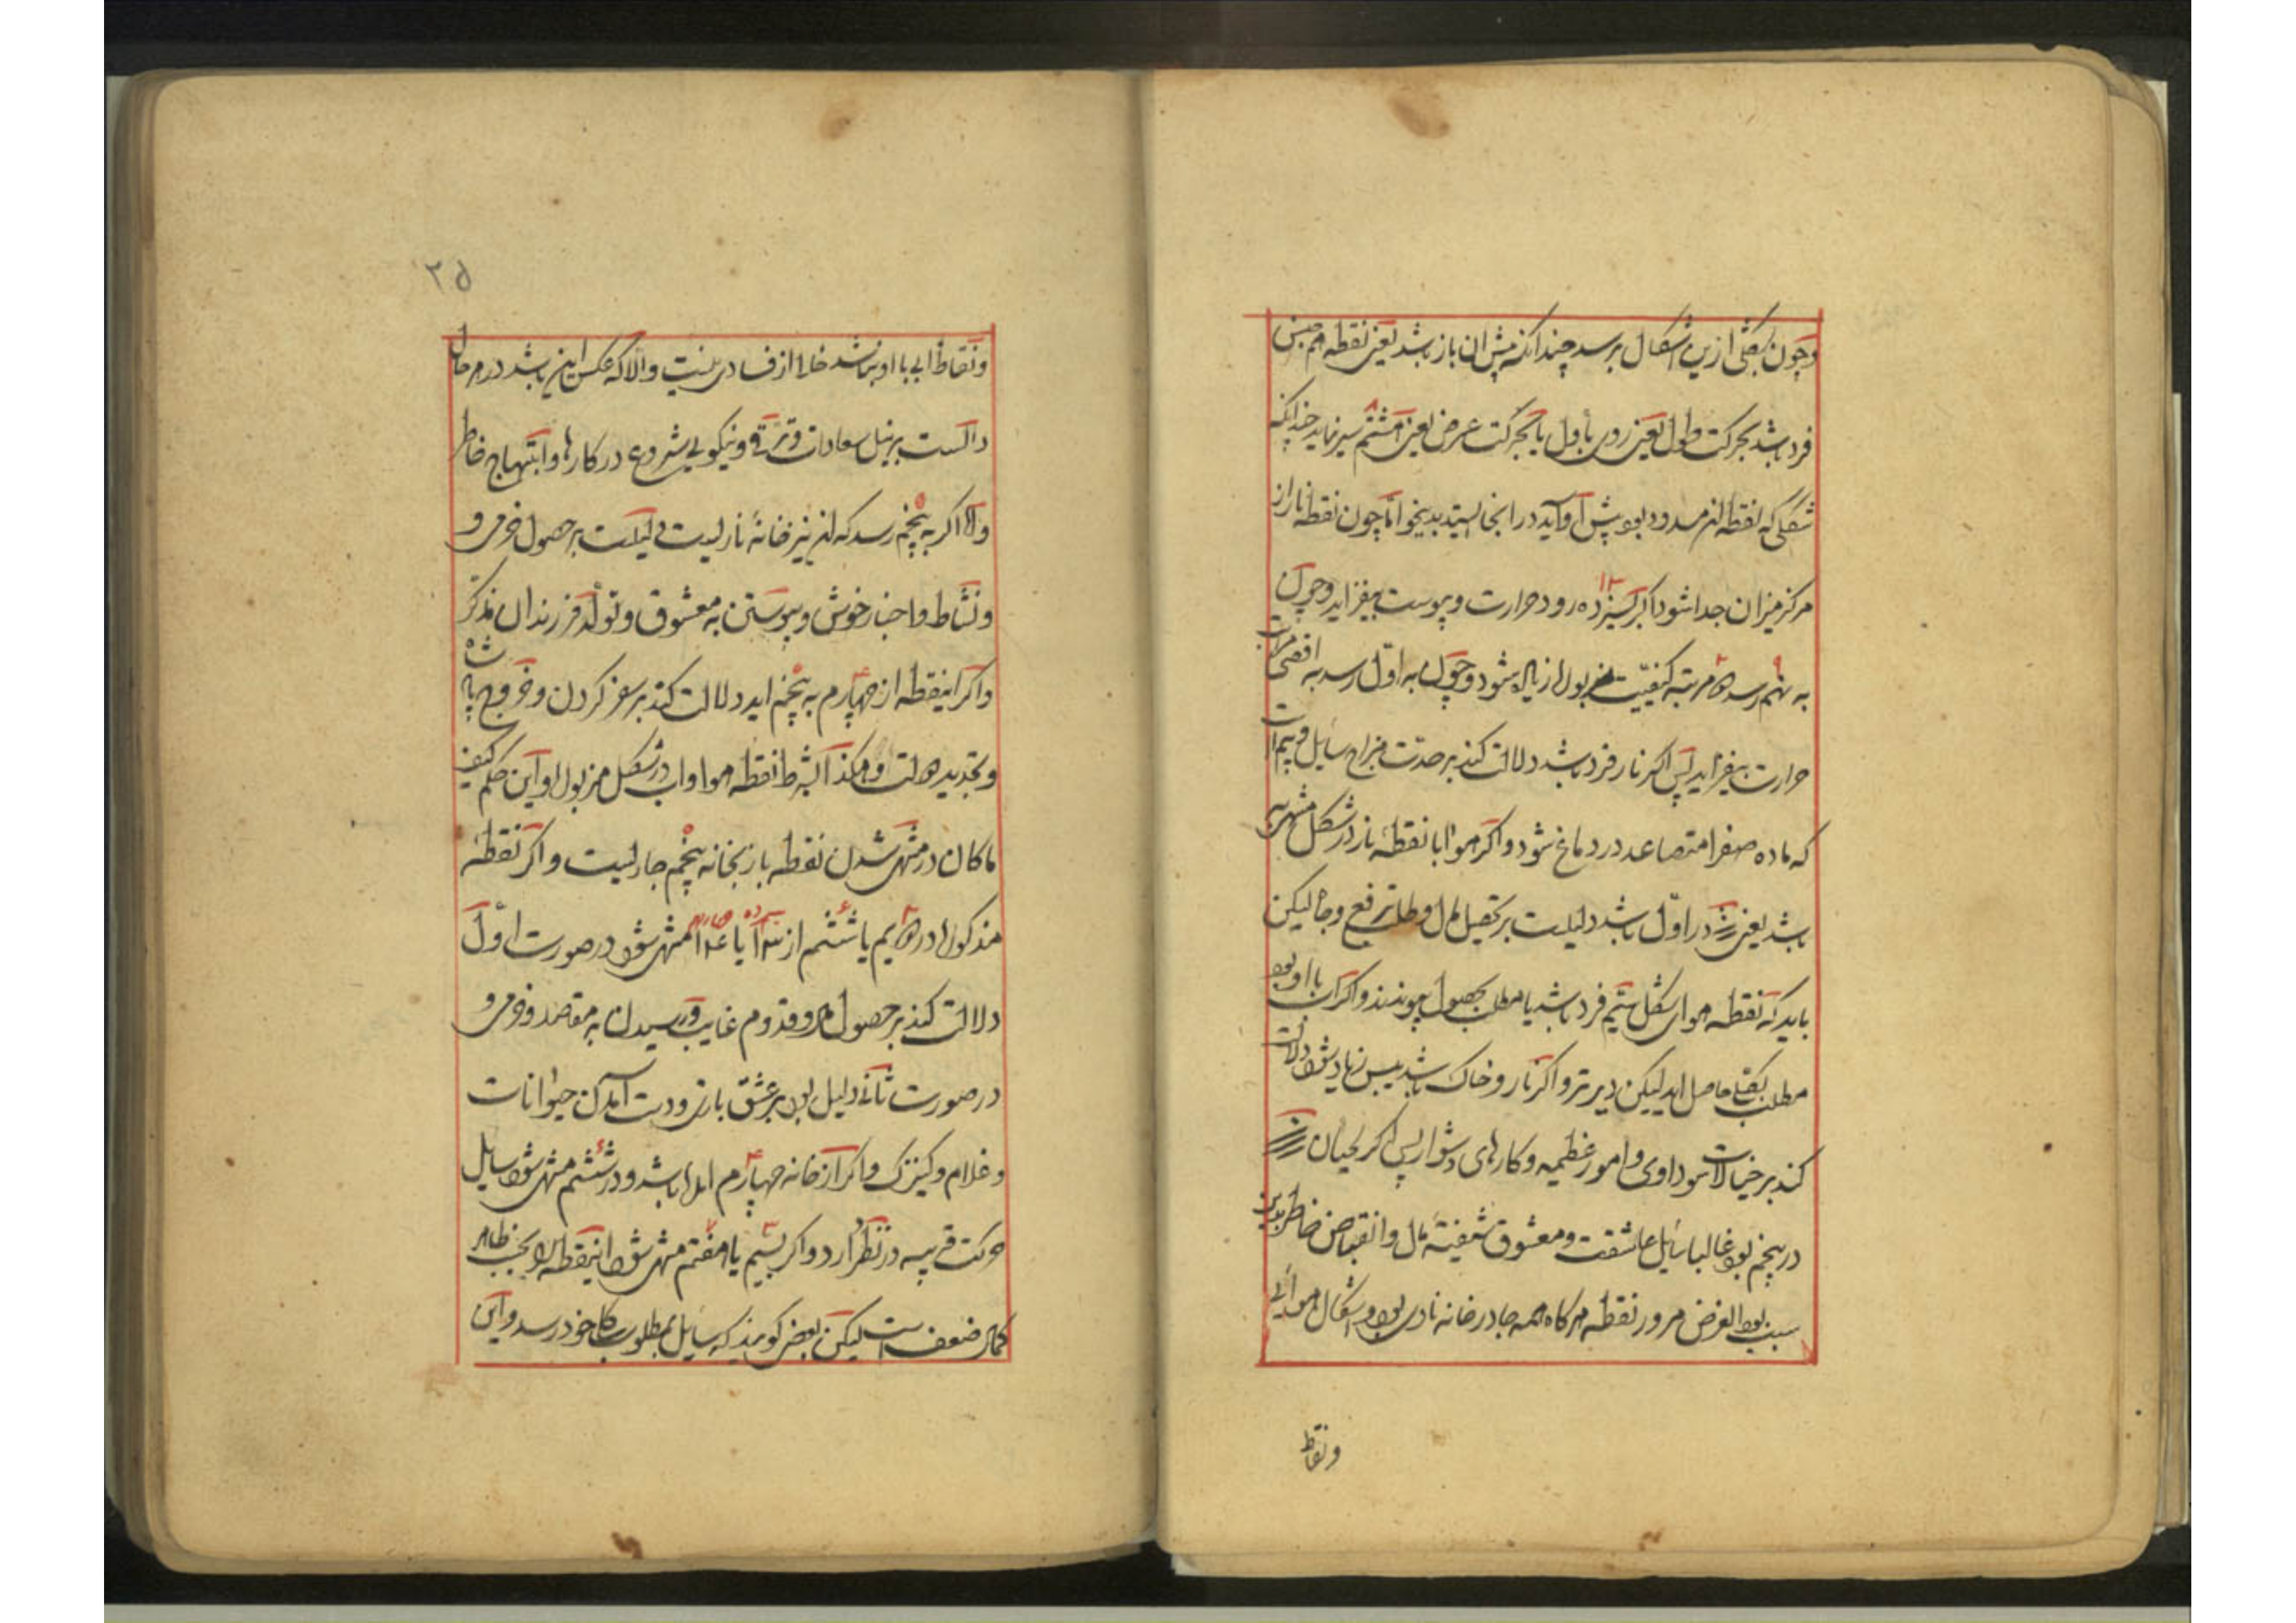 وچون بشکلی ازین اشکال برسد چندانکه پیش ان باز باشد یعنی نقطه هم جنس
فرد باشد بحرکت طول یعنی رود باول یا بحرکت عرض یعنی ۸ هشتم سیر نماید چندانکه
شکلی که نقطه مسدود بود پیش او آید در انجا بایستد اما چون نقطه نار از
مرکز میزان جدا شود اگر بسیزده ۱۳ رود حرارت و یبوست بیفزاید و چون
به نهم ۹ رسد مرتبه کیفیت مزبول زیاده شود و چون به اول رسد به اقصی مراتب
حرارت بیفزاید پس اگر نار فرد باشد دلالت کند بر حدت مزاج سایل و بیم است
که ماده صفرا متصاعد در دماغ شود و اگر هوا با نقطه نار در شکل منتهی به
باشد یعنی در اول باشد دلیلست بر تحصیل مال و طلب ترفع و جاه لیکن
باید که نقطه هوای شکل بیستم فرد باشد یا مطلب بحصول پیوندد و اگر آب با او بود
مطلب بقلی حاصل اید لیکن دیر تر و اگر نار و خاک باشد پس نهاد شود دلالت
کند بر خیالات سوداوی و امور عظیمه و کارهای دشوار پس اگر لحیان
در پنجم بود غالبا سایل عاشقست و معشوق شیفته مال و انقباض خاطر بدین
سبب بود الغرض مرور نقطه هر گاه همه جا در خانه ناری بود و اشکال هوائی
ونقاط
۲۵
ونقاط ابی با او نباشد خالی از فسادی نیست والا که عکس این باشد در هر حال
دالست بر نیل سعادات و ترقی و نیکویی شروع در کارها و ابتهاج خاطر
والا اگر به پنجم ۵ رسد که نیز خانهٔ ناریست دلیلست بر حصول خرمی و
ونشاط و اخبار خوش و پیوستن به معشوق و تولد فرزندان مذکر
واگر اینقطه از چهارم ۴ به پنجم ۵ اید دلالت کند بر سفر کردن و خروج پادشاه
و تجدید دولت و هکذا البشرط نقطه هوا و اب در شکل مزبول و این حکم کیف
ماکان در منتهی شدن نقطه باز بخانه پنجم ۵ جاریست و اگر نقطهٔ
مذکور در دویم ۲ یا ششم ۶ از ۱۳ یا ۱۴ منتهی شود در صورت اول
دلالت کند بر حصول مال و قدوم غایب و رسیدن به مقاصد و خرمی و
در صورت ثانی دلیل بود بر عشق بازی و دست آمدن حیوانات
و غلام و کنیزک و اگر از خانه چهارم ۴ ابتدا باشد و در ششم ۶ منتهی شود سایل
حرکت قریبه در نظر آرد و اگر بسیم ۳ یا هفتم ۷ منتهی شود اینقطه بحسب ظاهر
کمال ضعف است لیکن بعضی گویند که سایل بمطلوب بکام خود رسد و این